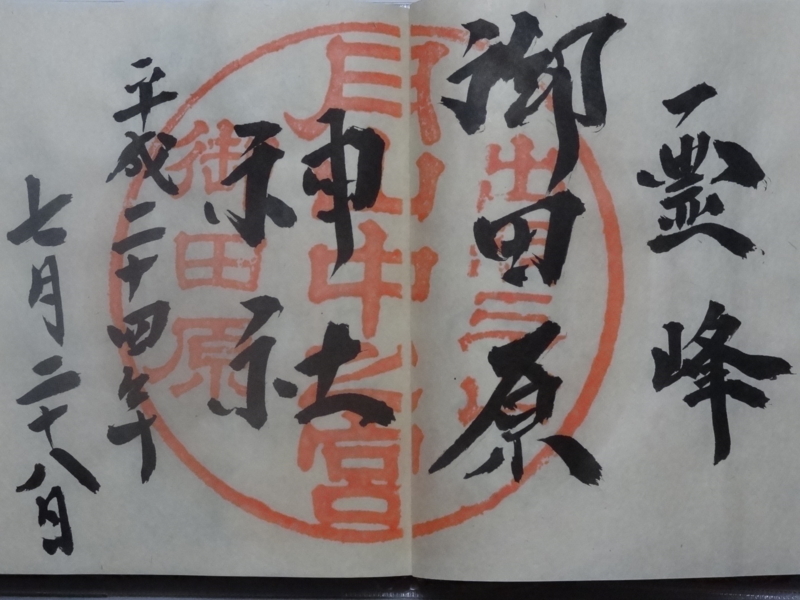 霊峰
御田原
神社
平成二十四年
七月二十八日
出羽三山
月山中之宮
御田原